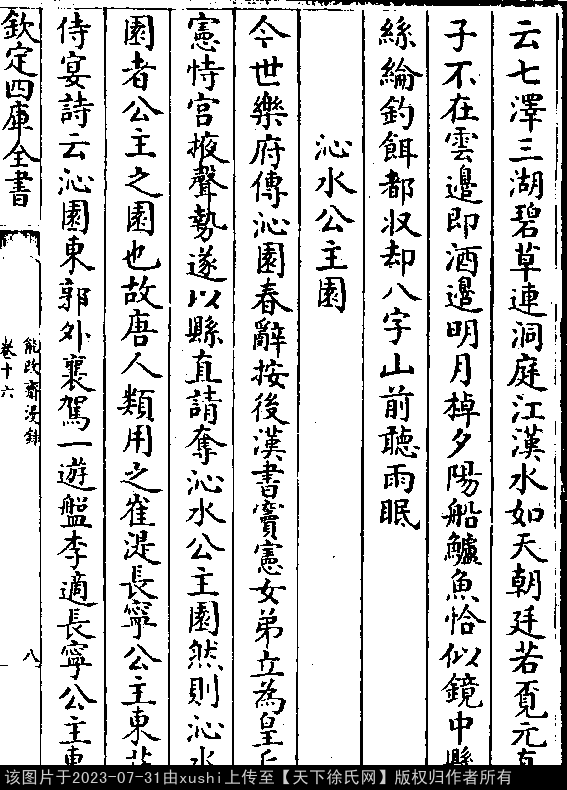 云七澤三湖碧草連洞庭江漢水如天朝廷若覓元真
子不在雲邊即酒邊明月棹夕陽船鱸魚恰似鏡中懸
絲綸釣餌都収却八字山前聽雨眠
沁水公主園
今世樂府傳沁園春辭按後漢書竇憲女弟立為皇后
憲恃宫掖聲勢遂以縣直請奪沁水公主園然則沁水
園者公主之園也故唐人類用之崔湜長寧公主東莊
侍宴詩云沁園東郭外襄駕一遊盤李適長寧公主東
欽定四庫全書
能改齋漫録
卷十六
八
该图片于2023-07-31由xushi上传至【天下徐氏网】版权归作者所有